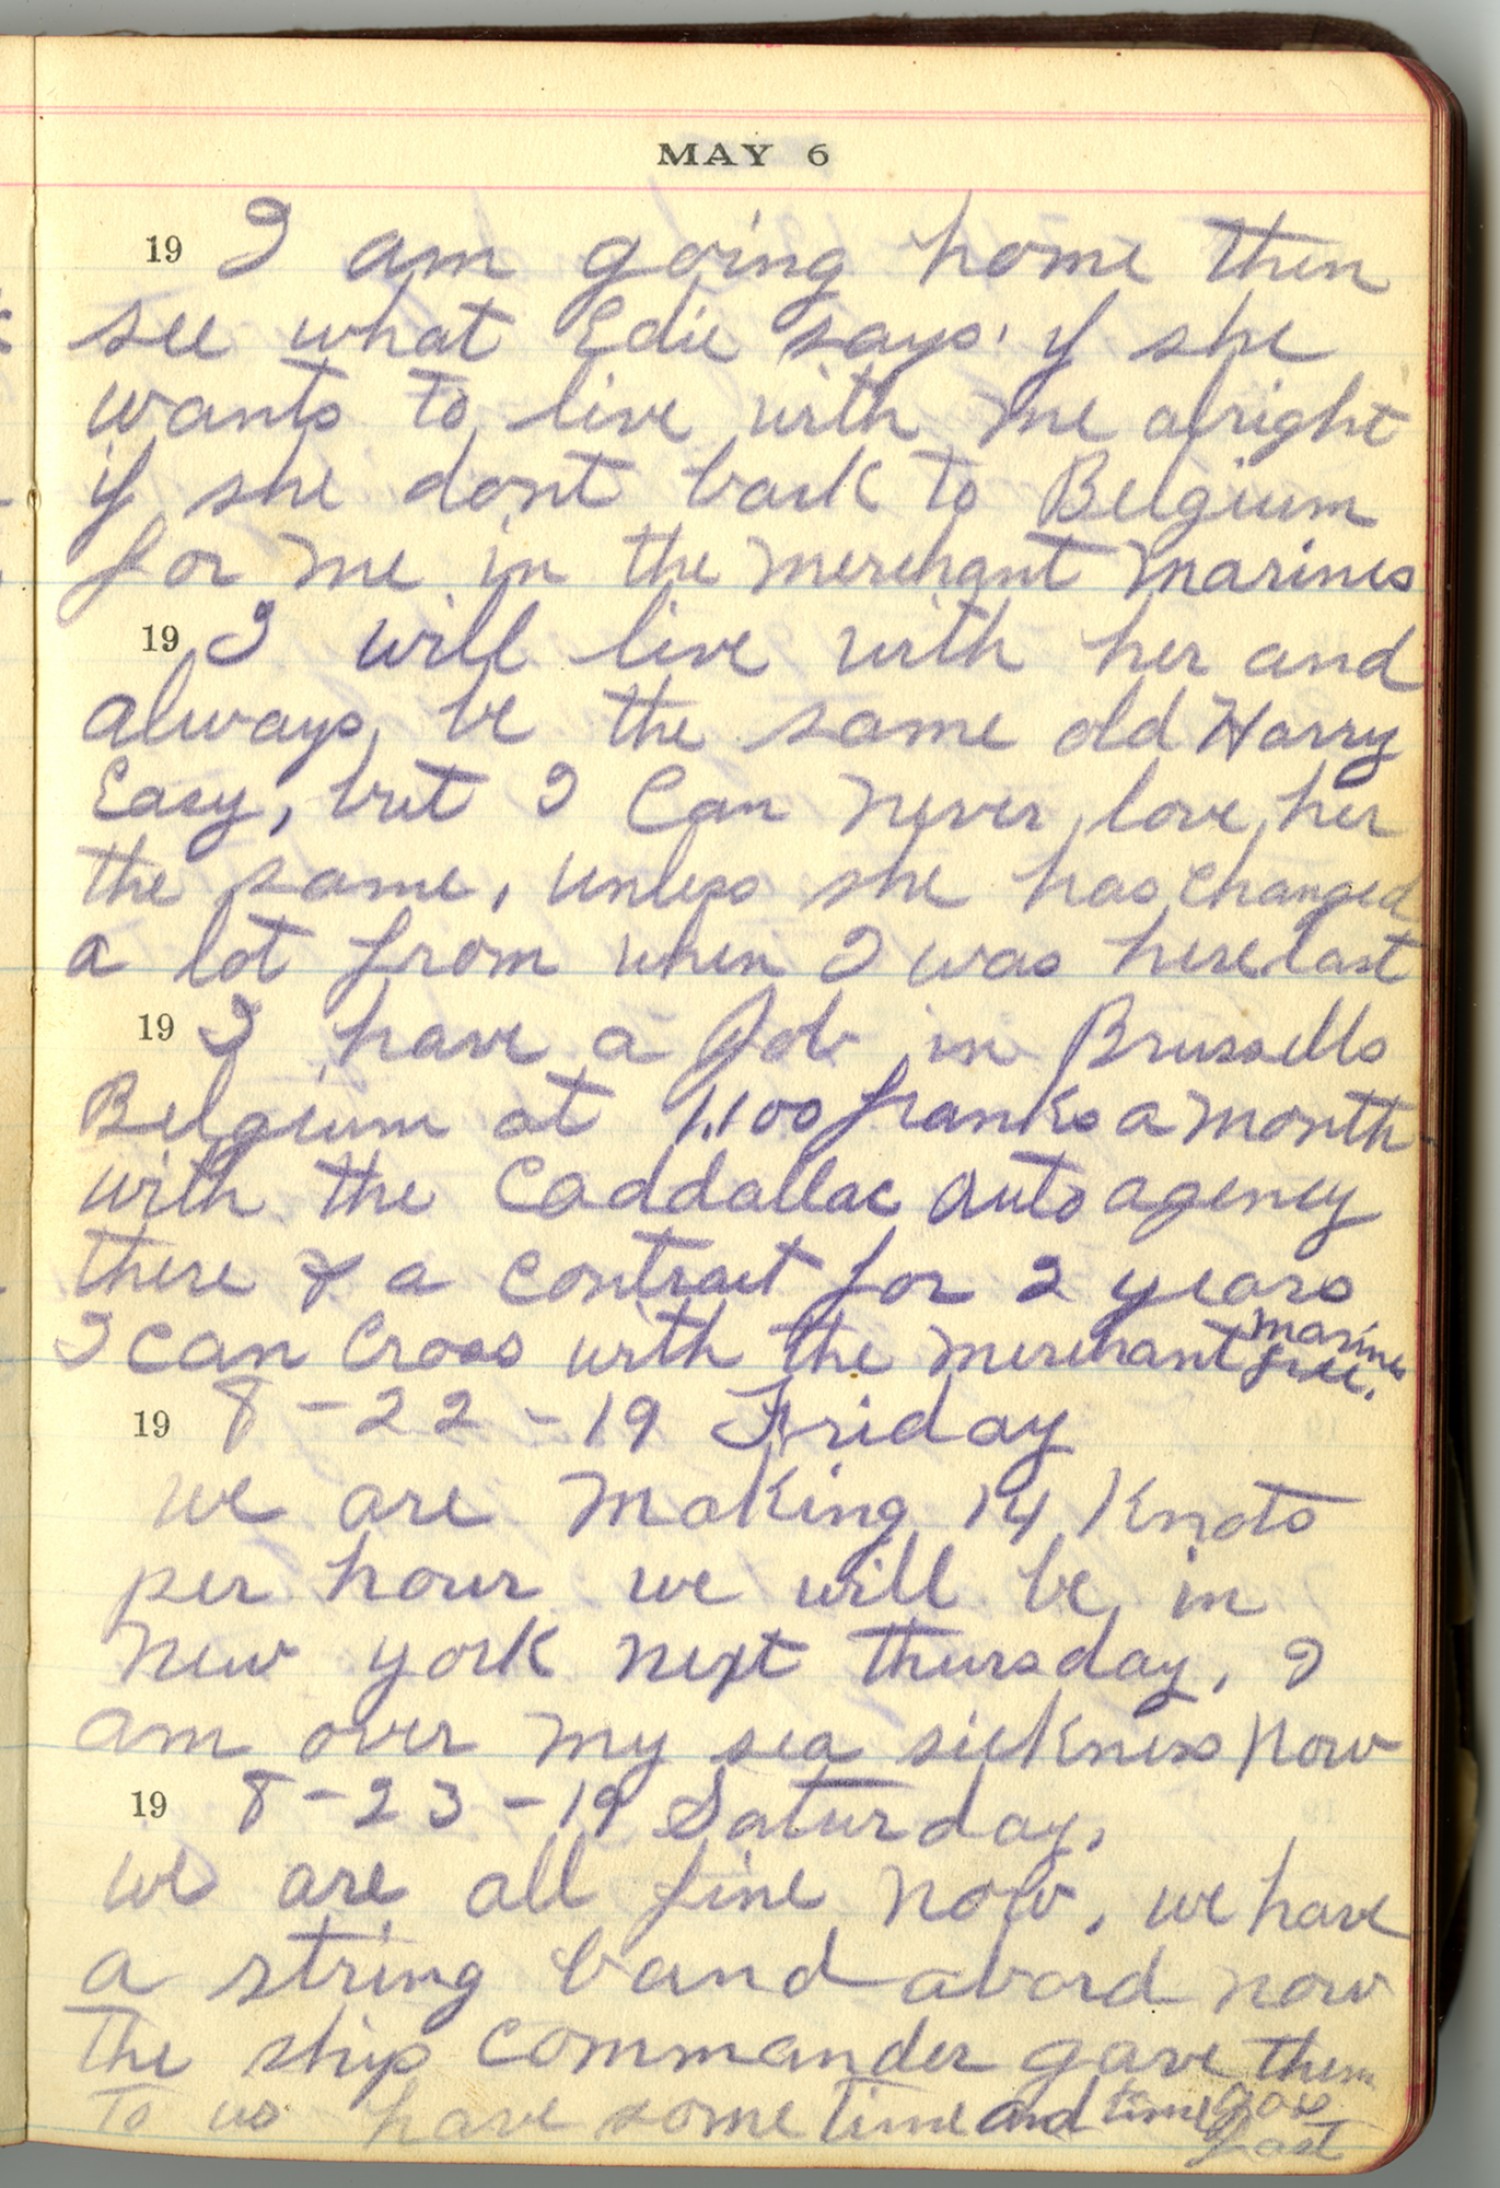 MAY 6
19 I am going home then
see what Edie says. if she
wants to live with me alright
if she dont back to Belgium
for me in the merchant marines
19 I will live with her and
always be the same old Harry
Easy, but I Can never love her
the same, unless she has changed
a lot from when I was here last
19 I have a Job in Brussells
Belgium at 1,100 franks a month
with the Caddallac Auto agency
there & a Contract for 2 years
I can Cross with the merchant marines free.
19 8-22-19 Friday
we are making 14 Knots
per hour we will be in
New york next thursday, I
am over my sea sickness now
19 8-23-19 Saturday,
we are all fine now, we have
a string band abord now
The ship Commander gave them
To us have some time and time goes fast